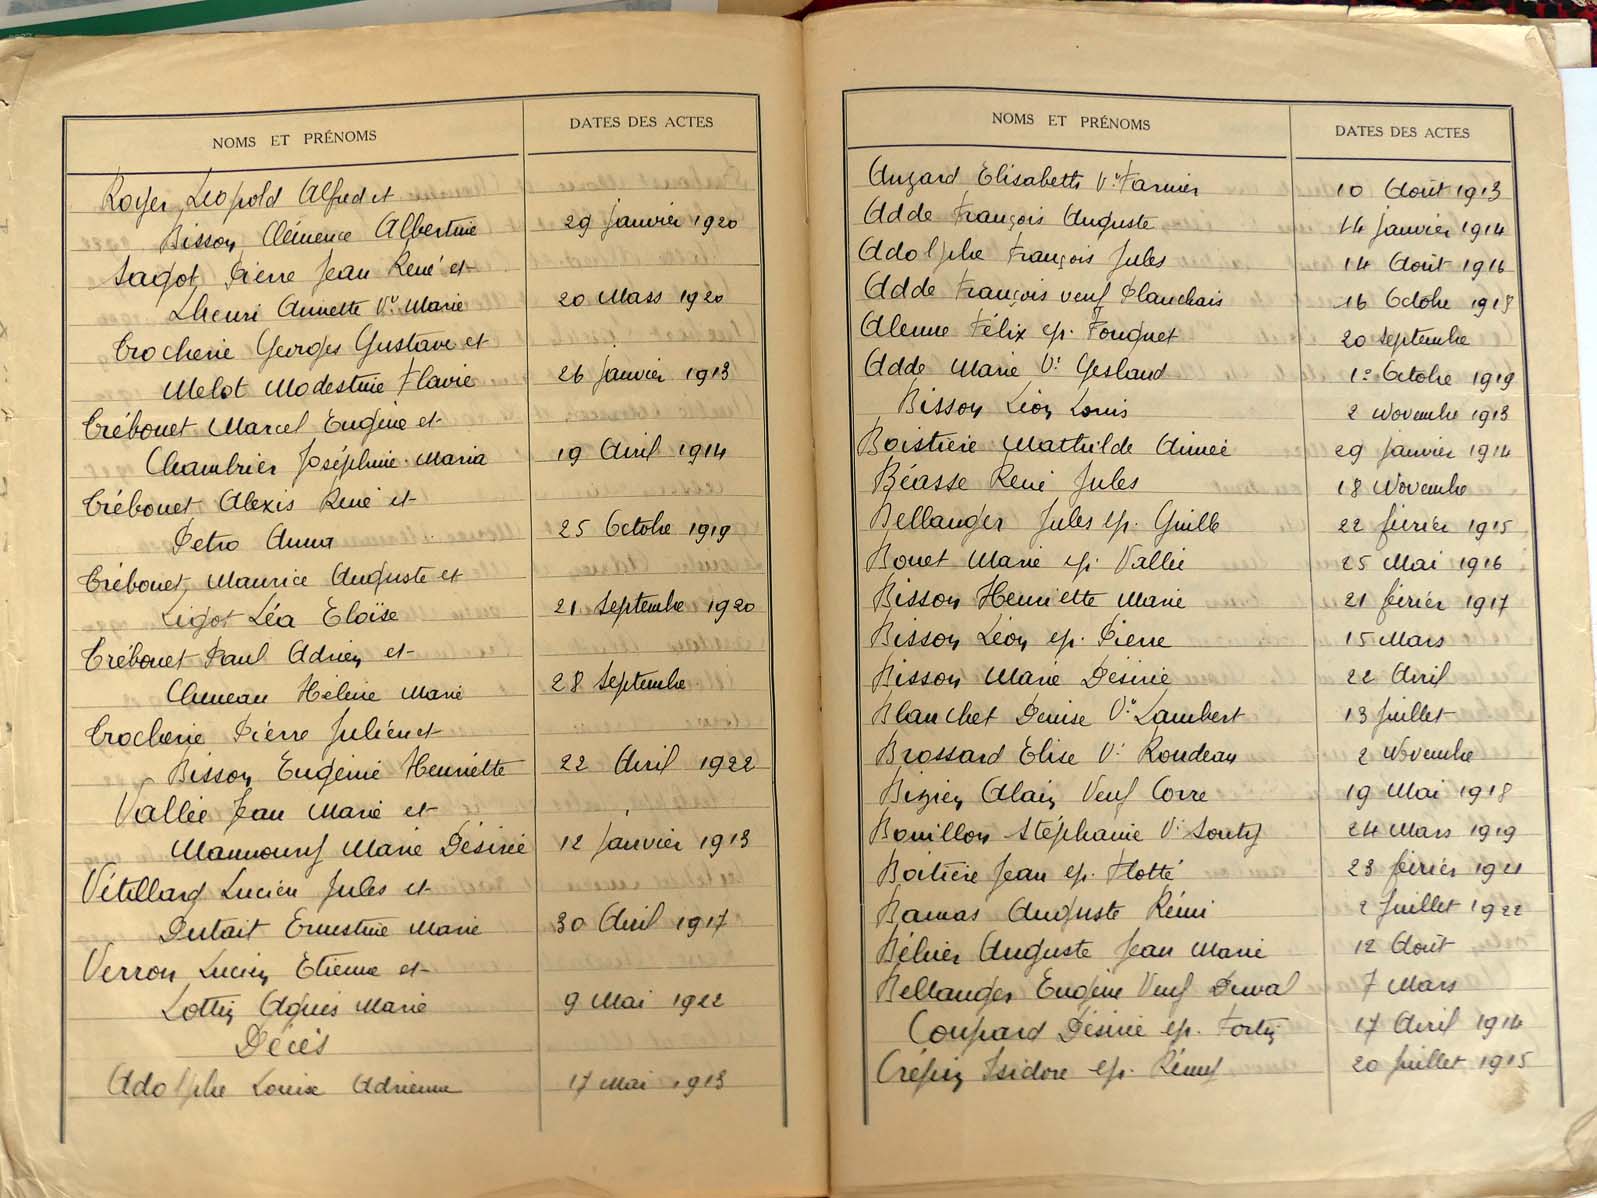 NOMS ET PRÉNOMS DATES DES ACTES
Royer Léopold Alfred et
Bisson Clémence Albertine 29 Janvier 1920
Sagot Pierre Jean René et
Lhenri Annette Vve Marie 20 Mars 1920
Trocherie Georges Gustave et
Melot Modestine Flavie 26 Janvier 1913
Trébouet Marcel Eugène et
Chambrier Joséphine Maria 19 Avril 1914
Trébouet Alexis René et
Petro Anna 25 Octobre 1919
Trébouet Maurice Auguste et
Ligot Léa Eloïse 21 Septembre 1920
Trébouet Paul Adrien et
Chuneau Hélène Marie 28 Septembre
Trocherie Pierre Julien et
Bisson Eugénie Henriette 22 Avril 1922
Vallée Jean Marie et
Mannoury Marie Désirée 12 Janvier 1913
Vétillard Lucien Jules et
Dutait Ernestine Marie 30 Avril 1917
Verron Lucien Etienne et
Lottin Agnès Marie 9 Mai 1922
Décès
Adolphe Louise Adrienne 17 Mai 1913
NOMS ET PRÉNOMS DATES DES ACTES
Auzard Elisabeth Ve Farnier 10 Août 1913
Adde François Auguste 14 Janvier 1914
Adolphe François Jules 14 Août 1916
Adde François veuf Planchais 16 Octobre 1918
Alenne Félix ep. Fouquet 20 Septembre
Adde Marie Ve Gesland 1er Octobre 1919
Bisson Léon Louis 2 Novembre 1913
Boistière Mathilde Aimée 29 Janvier 1914
Béasse René Jules 18 Novembre
Bellanger Jules ep. Guillo 22 février 1915
Bouet Marie ep. Vallée 25 Mai 1916
Bisson Henriette Marie 21 février 1917
Bisson Léon ep. Pierre 15 Mars
Bisson Marie Désirée 22 Avril
Blanchet Denise Ve Lambert 13 Juillet
Brossard Elise Ve Rondeau 2 Novembre
Bizien Alain Veuf Corre 19 Mai 1918
Bouillon Stéphanie Ve Souty 24 Mars 1919
Boitière Jean ep. Flotté 23 février 1921
Bamas Auguste Rémi 2 Juillet 1922
Béhier Auguste Jean Marie 12 Août
Bellanger Eugène Veuf Duval 7 Mars
Coupard Désirée ep. Fortin 17 Avril 1914
Crépin Isidore ep. Rémy 20 Juillet 1915